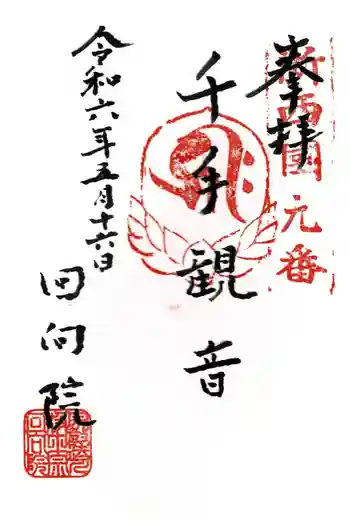 奉拝
新西國
元番
千手観音
令和六年五月十六日
回向院